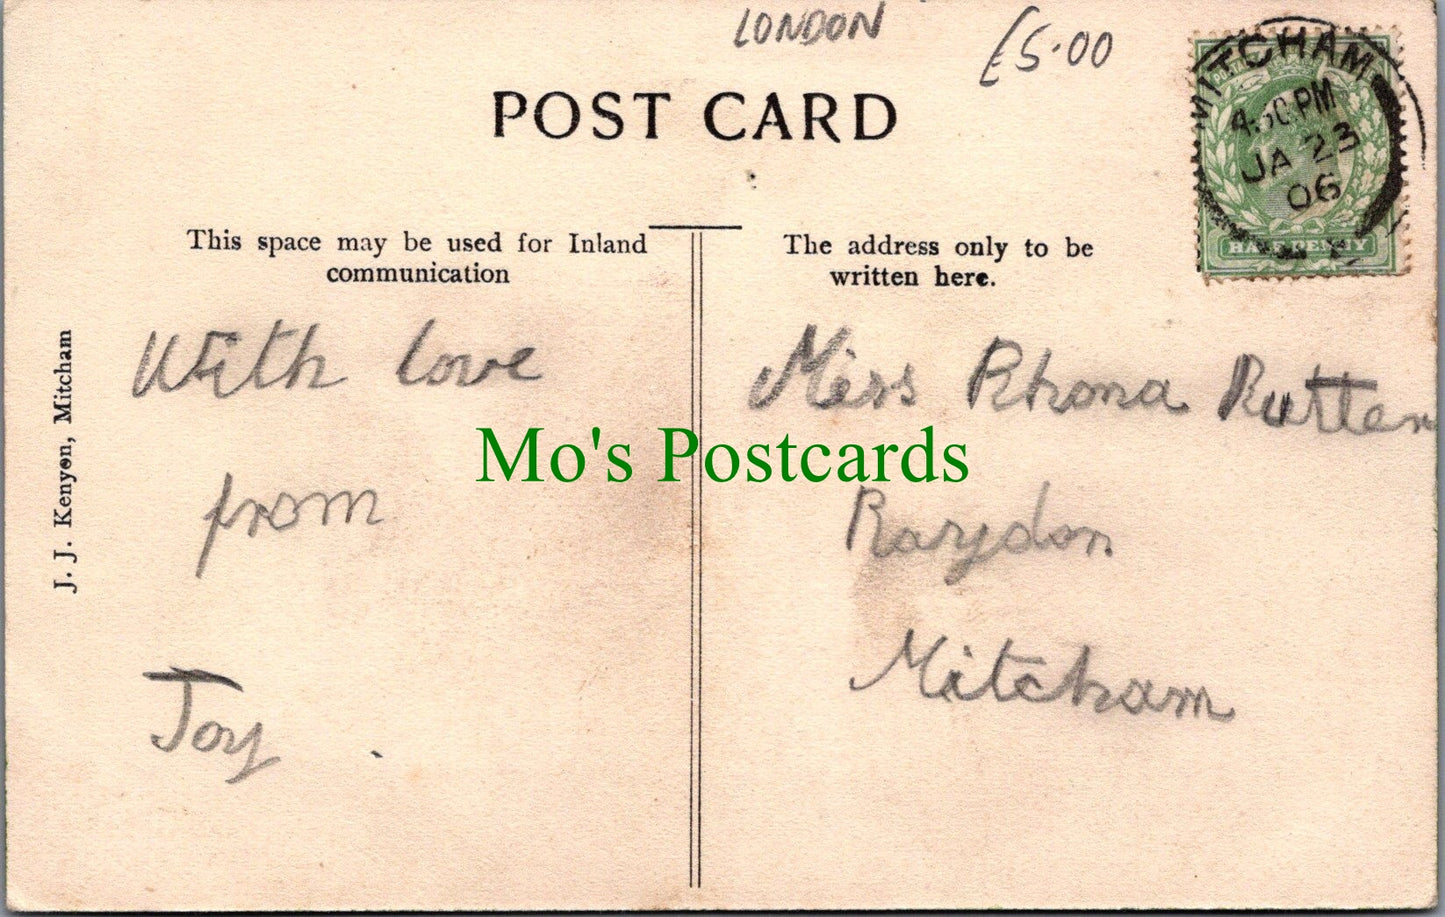 LONDON
£5.00
POST CARD
MITCHAM
PM
JA 23
06
HALFPENNY
This space may be used for Inland
communication
The address only to be
written here.
J. J. Kenyon, Mitcham
With love
from
Joy
Miss Rhona Rutter
Raydon
Mitcham
Mo's Postcards